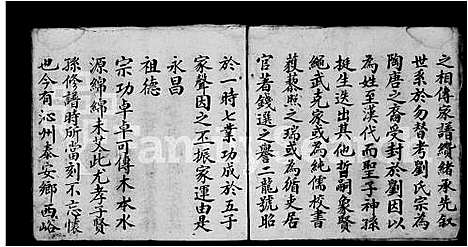 之相傳家譜纘緒承先叙
世系於勿替考劉氏宗為
陶唐之裔受封於劉因以
為姓至漢代而聖子神孫
挺生迭出其他哲嗣象賢
繩武克家或為純儒校書
藜照之瑞或為循吏居
官著錢選之譽二龍號昭
於一時七業功成於五子
家聲因之不振家運由是
永昌
祖德
宗功卓卓可傳木本水
源綿綿未艾此尤孝子賢
孫修譜時所當刻不忘懷
也今有沁州泰安鄉西峪